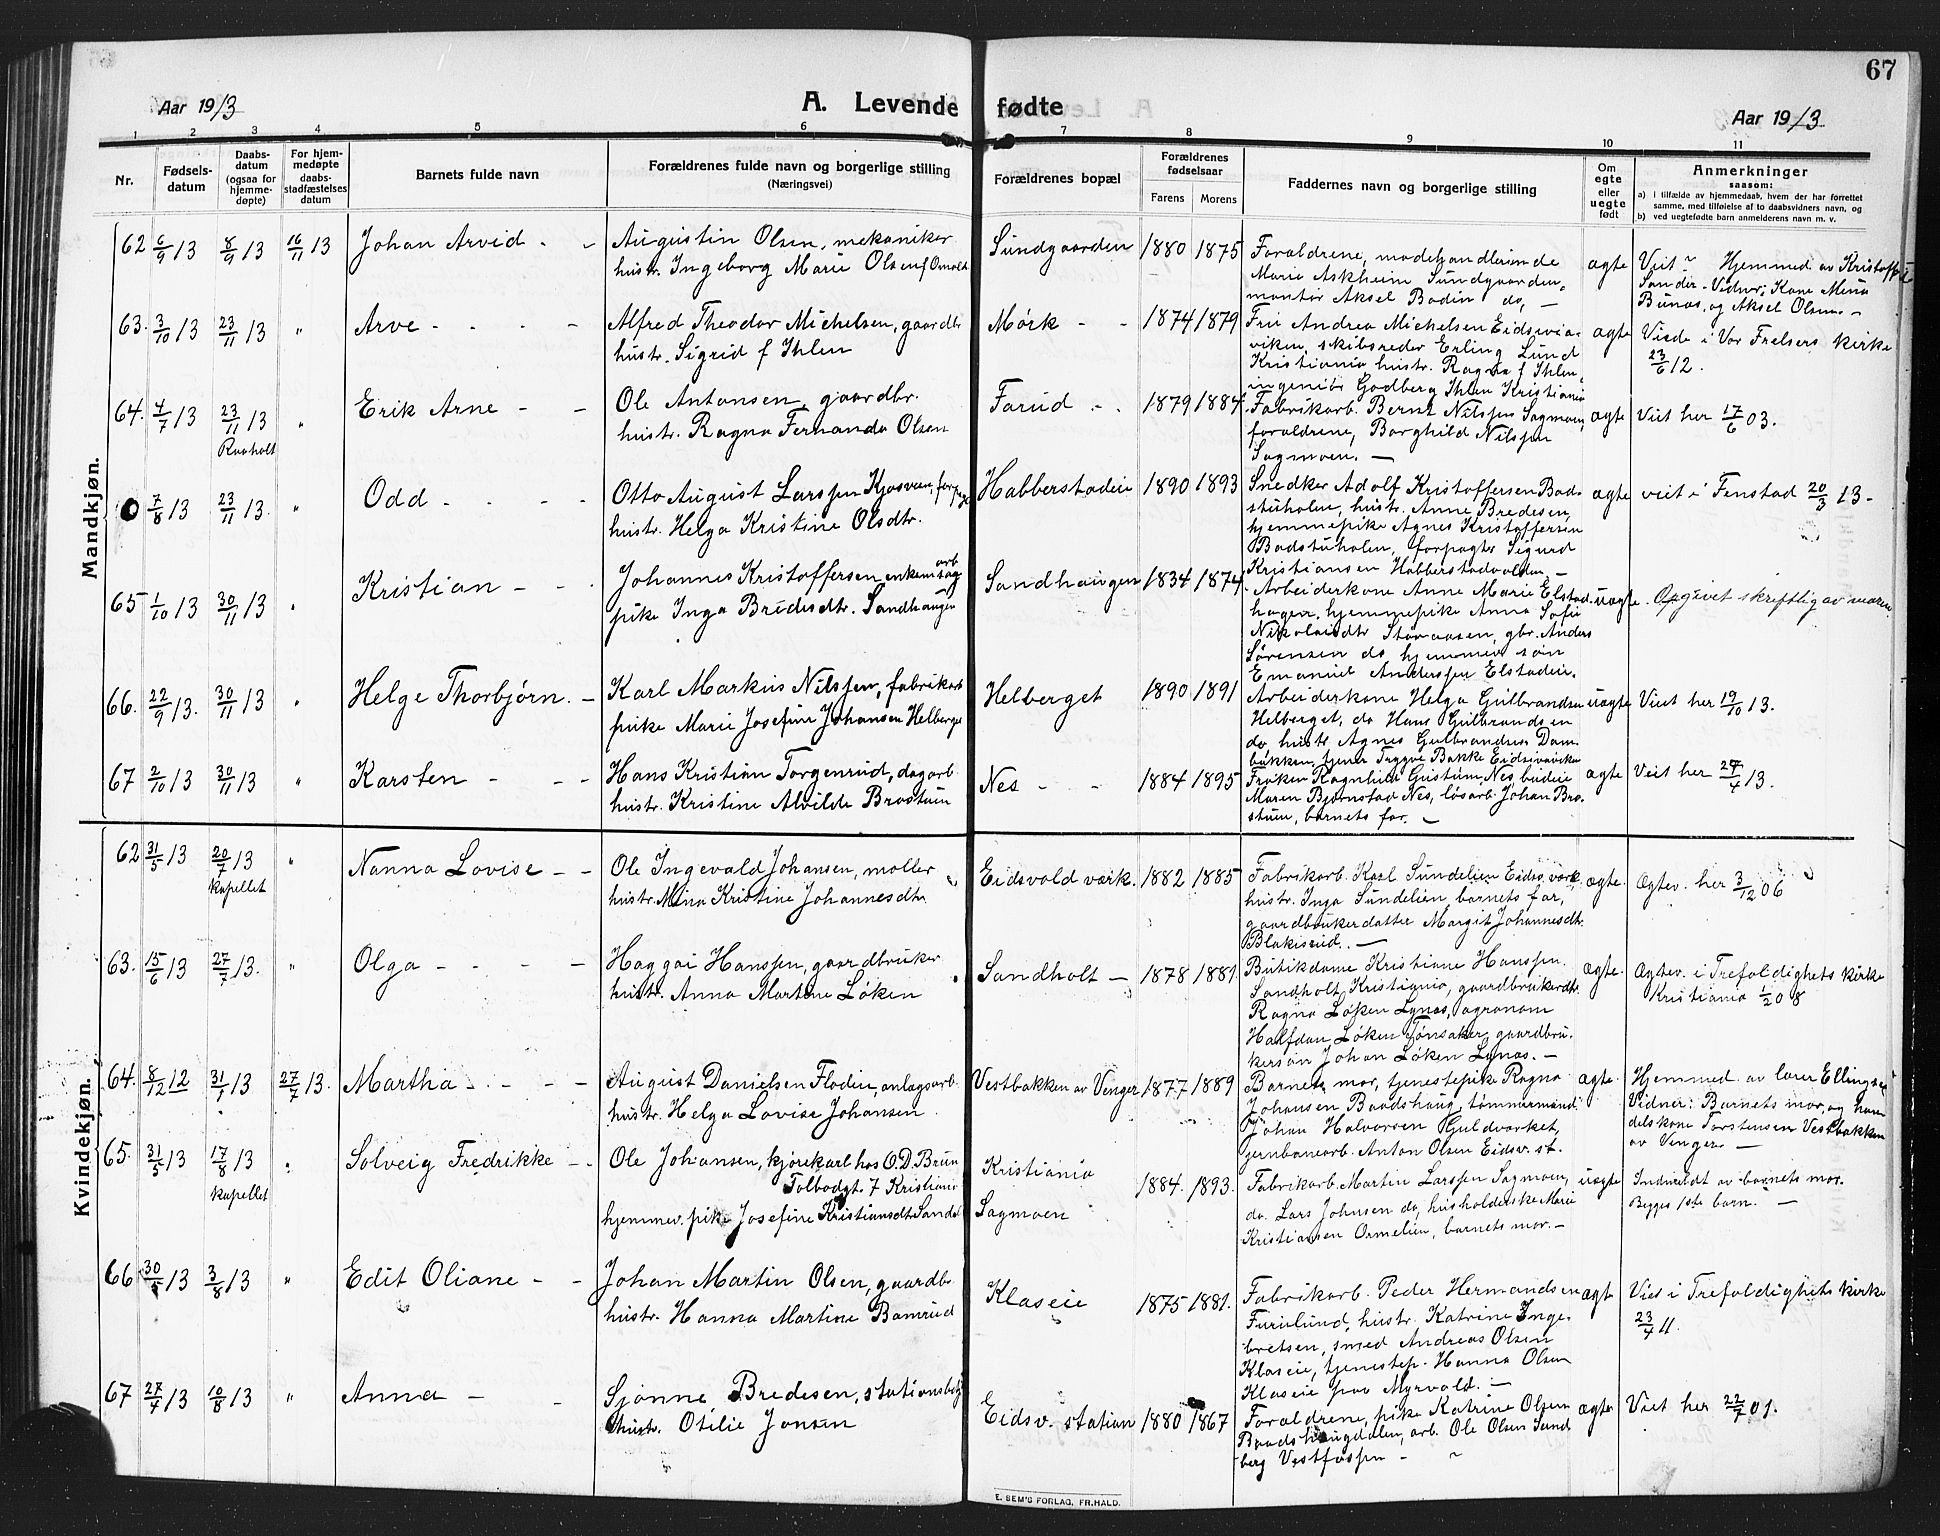 67
Aar 1913
A. Levende fødte
Aar 1913
1 2 3 4 5 6 7 8 9 10 11
Nr.
Fødsels-
datum
Daabs-
datum
(ogsaa for
hjemme-
døpte)
For hjem-
medøpte
daabs-
stadfæstelses
datum
Barnets fulde navn
Forældrenes fulde navn og borgerlige stilling
(Næringsvei)
Forældrenes bopæl
Forældrenes
fødselsaar
Farens Morens
Faddernes navn og borgerlige stilling
Om
egte
eller
uegte
født
Anmerkninger
saasom:
a) i tilfælde av hjemmedaab, hvem der har forrettet
samme, med tilføielse af to daabsvidners navn, og
b) ved uegtefødte barn anmelderens navn m. v.
Mandkjøn.
62 6/9 13 8/9 13 16/11 13 Johan Arvid - -
Augustin Olsen, mekaniker
hustr. Ingeborg Marie Olsen f
Sundgaarden 1880 1875
Forældrene, modehandlerinde
Marie Askheim Sundgaarden,
montør Aksel Bodin do, —
ægte
Viet ~ Hjemmed av Kristoffer
Sander. Vidner; Kone Mina
Bunæs, og Aksel Olsen. -
63. 3/10 13 23/11 13 " Arve - - - -
Alfred Theodor Michelsen, gaardbr
hustr. Sigrid f Ihlen
Mørk - - 1874 1879
Fru Andrea Michelsen Eidsvia-
viken, skibsreder Erling Lund
Kristiania hustr. Ragna f Ihlen,
ingeniør Godberg Ihlen Kristiania
ægte
Viede i Vor Frelsers kirke
23/6 12.
64. 4/7 13 23/11 13 " Erik Arne - -
Raaholt
Ole Antonsen, gaardbr.
hustr. Ragna Fernanda Olsen
Farud - . 1879 1884
Fabrikarb. Bernt Nilssen Sagmoen,
forældrene, Borghild Nilssen
Sagmoen. —
ægte
Viet her 17/6 03.
7/8 13 23/11 13. " Odd - - - -
Otto August Larssen Kjosveien,
hustr. Helga Kristine Olsdtr.
Habberstadeie 1890 1893
Snedker Adolf Kristoffersen Bad-
stuholen, hustr. Anne Bredesen,
hjemmepike Agnes Kristoffersen
Badstuholen, forpagter Sigurd
Kristiansen Habberstadvolden —
ægte
viet i Fenstad 20/3 13-
65 1/10 13 30/11 13 " Kristian - - .
Johannes Kristoffersen enkem
pike Inga Bredesdtr. Sandhaugen
Sandhaugen 1834 1874
Arbeiderkone Anne Marie Elstad-
hagen, hjemmepike Anna Sofie
Nikolaidtr Storaasen, gbr. Anders
Sørensen do hjemmev søn
Emanuel Anderssen Elstadeie.
uægte.
Opgivet skriftlig av moren
66. 22/9 13. 30/11 13 " Helge Thorbjørn. -
Karl Markus Nilssen, fabrikarb
pike Marie Josefine Johansen Helberget
Helberget 1890 1891
Arbeiderkone Helga Gulbrandsen
Helberget, do Hans Gulbrandsen
do, hustr Agnes Gulbrandsen Dam-
bakken, tjener Trygve Bakke Eidsvaviken
uægte
Viet her 19/10 13.
67 2/10 13 30/11 13 " Karsten - - -
Hans Kristian Torgenrud, dagarb.
hustr. Kristine Alvilde Brostuen
Nes - - 1884 1895
Frøken Ragnhild Gistum Nes, budeie
Maren Bjørnstad Nes, løsarb. Johan Bro-
stuen, barnets far. —
ægte
Viet her 27/4 13.
Kvindekjøn.
62 31/5 13 20/7 13 " Nanna Lovise - -
kapellet
Ole Ingevald Johansen, møller
hustr. Mina Kristine Johannesdtr
Eidsvold værk. 1882 1885
Fabrikarb. Karl Sundelien Eidsv. værk
hustr. Inga Sundelien, barnets far,
gaardbrukerdatter Margit Johannesdtr
Blakisrud. —
ægte.
Ægtev. her 3/12 06
63. 15/6 13 27/7 13. " Olga - - - -
Haggai Hanssen, gaardbruker
hustr. Anna Martine Løken
Sandholt — 1878 1881
Butikdame Kristiane Hanssen
Sandholt, Kristiania, gaardbrukerdtr
Ragna Løken Lynæs, agronom
Halfdan Løken Tønsaker, gaardbru-
kersøn Johan Løken Lynæs. -
ægte.
Ægtev. i Trefoldighets kirke
Kristiania 1/20 08
64. 8/12 12 31/1 13 27/7 13. Martha - - - -
August Danielsen Flodin, anlægsarb.
hustr. Helga Lovise Johansen
Vestbakken av Venger 1877 1889
Barnets mor, tjenestepike Ragna
Johansen Baadshaug, tømmermand
Johan Halvorsen Guldverket,
jernbanearb. Anton Olsen Eidsv. st.
ægte.
Hjemmed av lærer Ellingsen
Vidner: Barnets mor, og han-
delskone Torstensen Vestbakken
av Venger —
65. 31/5 13 17/8 13 " Solveig Fredrikke - -
kapellet
Ole Johansen, kjørekarl hos O. D. Brun
Tolbodgt. 7 Kristiania
hjemmev. pike Josefine Kristiansdtr
Kristiania
Sagmoen
1884. 1893.
Fabrikarb. Martin Larssen Sagmoen,
do. Lars Johnsen do, husholderske Marie
Kristiansen Ormelien, barnets mor. -
uægte
Indmeldt av barnets mor.
Begges 1ste barn. —
66 30/5 13 3/8 13 " Edit Oliane - -
Johan Martin Olsen, gaardbr
hustr. Hanna Martine Bamrud
Klaseie 1875 1881.
Fabrikarb. Peder Hermansen
Furulund, hustr. Katrine Inge-
bretsen, smed Andreas Olsen
Klaseie, tjenestep. Hanna Olsen
Klaseie paa Myrvold. —
ægt
Vied i Trefoldighets kirke
23/4 11.
67 27/4 13 10/8 13 " Anna - -
Sjønne Bredesen, stationsbetj
hustr. Otilie Jonsen
Eidsv. station 1880 1867
Forældrene, pike Katrine Olsen
Baadshaugdalen, arb. Ole Olsen Sand-
berg Vestfossen - ~
ægte
Viet her 22/7 01.
E. SEM'S FORLAG, FR.HALD.